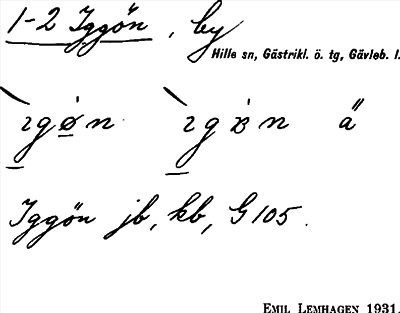 1-2 Iggön, by
Hille sn, Gästrikl. ö. tg, Gävleb. l.
ä
Iggön jb, kb, G 105.
EMIL LEMHAGEN 1931.